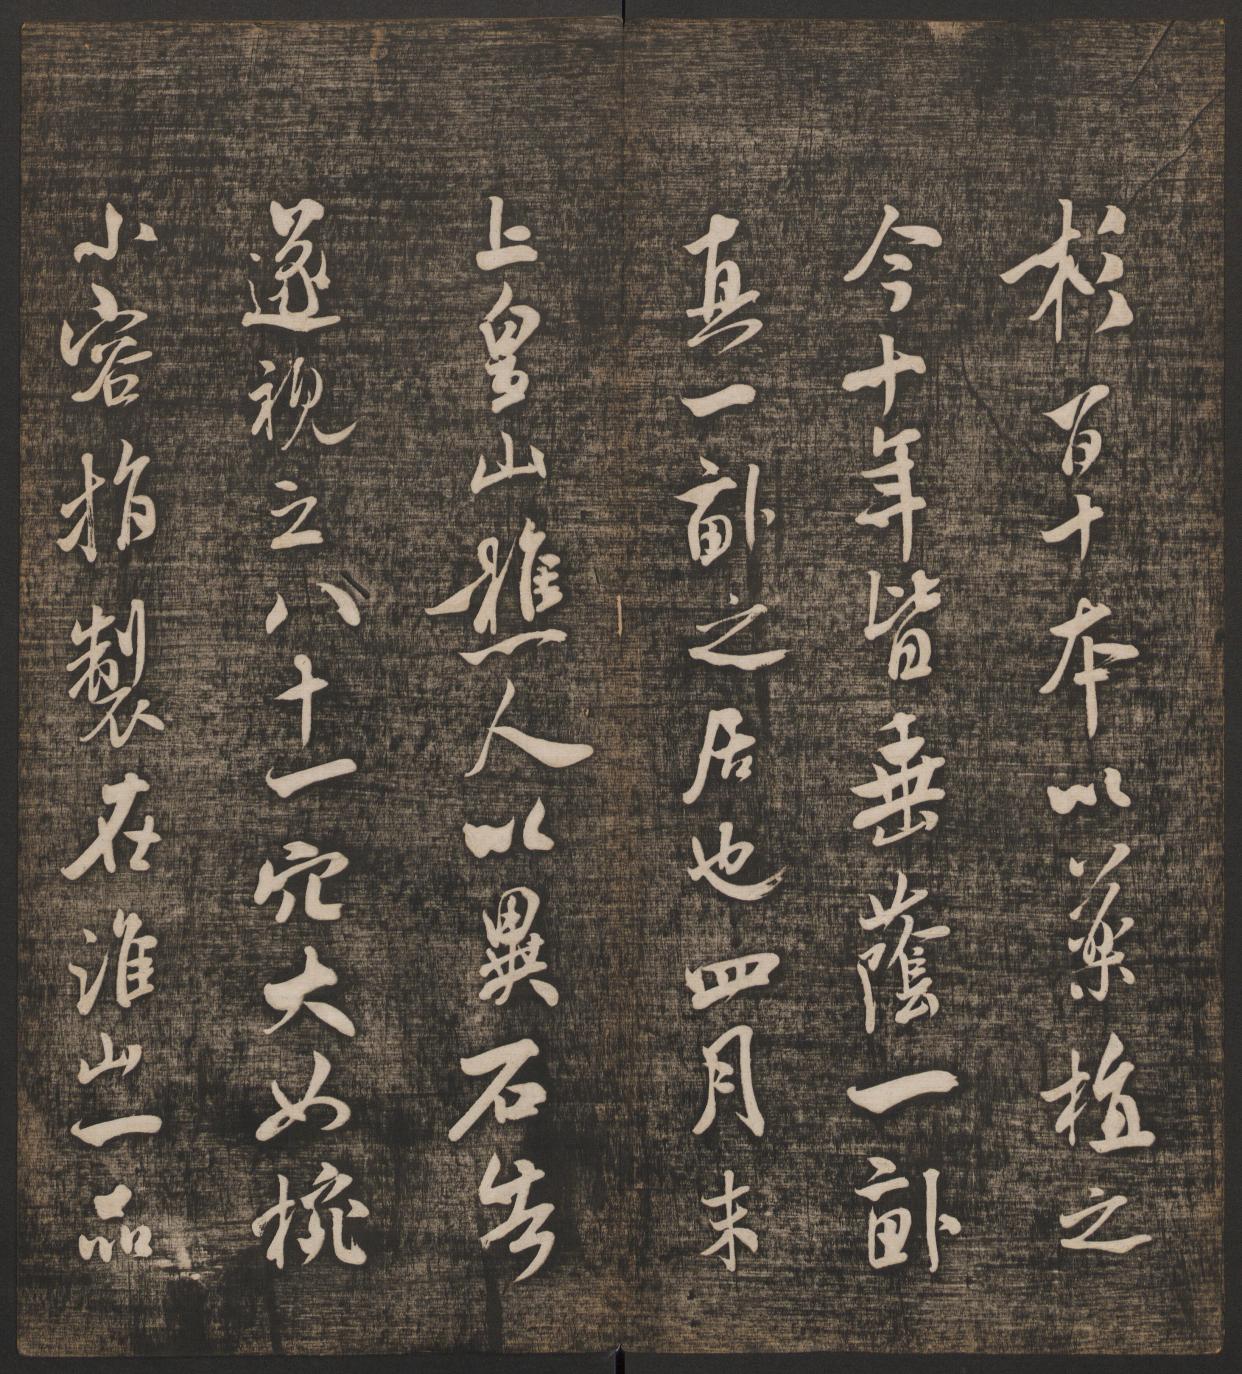 杉百十本以藥植之
今十年皆垂蔭一畝
真一畝之居也四月末
上皇山樵人以異石告
遂視之八十一穴大如椀
小容指製在淮山一品